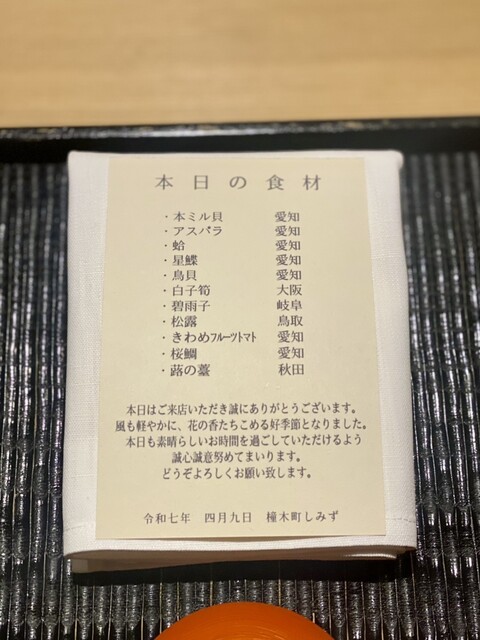 本日の食材
・本ミル貝 愛知
・アスパラ 愛知
・蛤 愛知
・星鰈 愛知
・鳥貝 愛知
・白子筍 大阪
・碧雨子 岐阜
・松露 鳥取
・きわめフルーツトマト 愛知
・桜鯛 愛知
・蕗の薹 秋田
本日はご来店いただき誠にありがとうございます。
風も軽やかに、花の香たちこめる好季節となりました。
本日も素晴らしいお時間を過ごしていただけるよう
誠心誠意努めてまいります。
どうぞよろしくお願い致します。
令和七年 四月九日 橦木町しみず